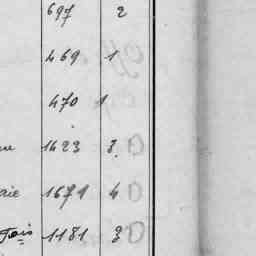 697 2
469 1
470 1
1423 3.
aie 1671 4
Fois 1181 3